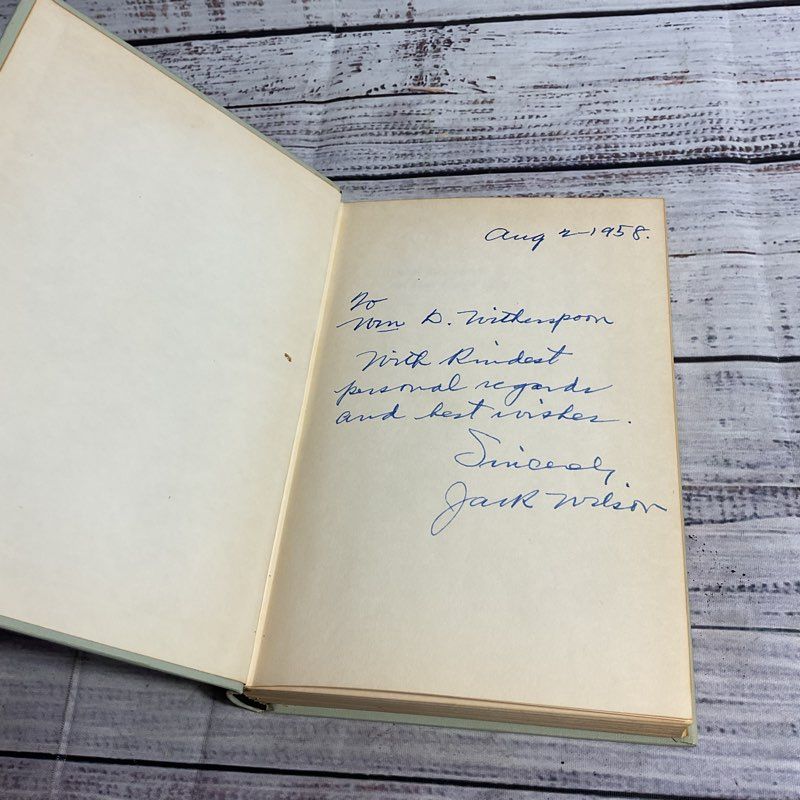 Aug 2 1958.
To
Wm D. Witherspoon
With Kindest
personal regards
and best wishes.
Sincerely
Jack Wilson